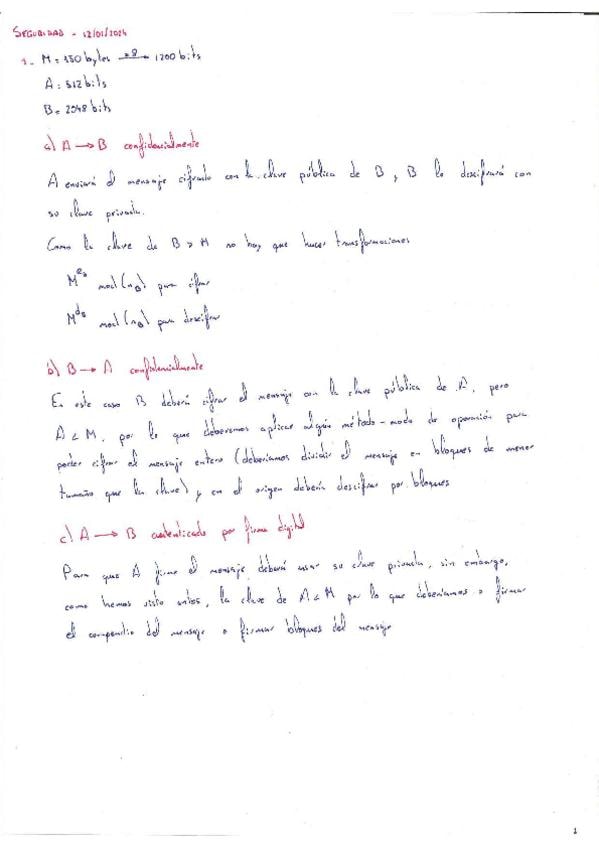 SEGURIDAD - 12/01/2024
1.- M = 150 bytes ×8→ 1200 bits
A = 512 bits
B = 2048 bits
a) A → B confidencialmente
A enviará el mensaje cifrado con la clave pública de B y B lo descifrará con
su clave privada.
Como la clave de B > M no hay que hacer transformaciones
M^eb mod (nB) para cifrar
M^db mod (nB) para descifrar
b) B → A confidencialmente
En este caso B deberá cifrar el mensaje con la clave pública de A, pero
A < M, por lo que deberemos aplicar algún método-modo de operación para
poder cifrar el mensaje entero (deberíamos dividir el mensaje en bloques de menor
tamaño que la clave) y en el origen debería descifrar por bloques
c) A → B autenticado por firma digital
Para que A firme el mensaje deberá usar su clave privada, sin embargo,
como hemos visto antes, la clave de A < M por lo que deberíamos o firmar
el compendio del mensaje o firmar bloques del mensaje
1